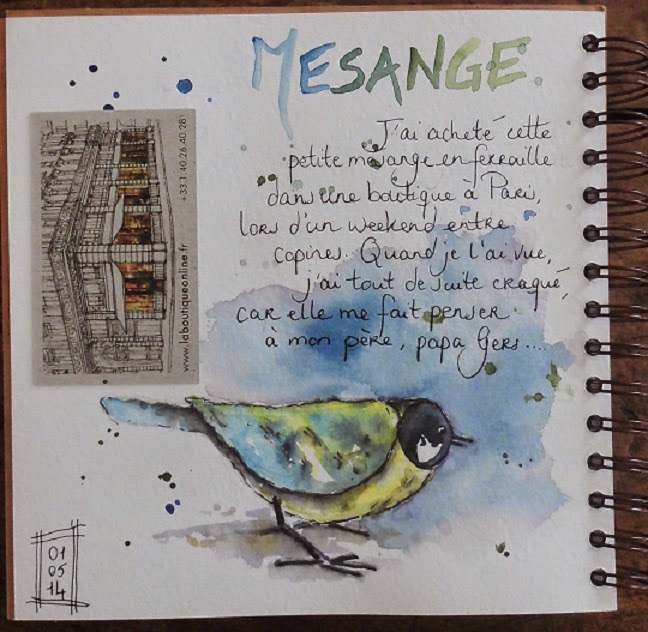 MESANGE
J'ai acheté cette
petite mésange en ferraille
dans une boutique à Paris,
lors d'un weekend entre
copines.. Quand je l'ai vue,
j'ai tout de suite craqué,
car elle me fait penser
à mon père, papa Gers....
www.laboutiqueonline.fr
+33.1.40.26.40.28
01
05
14